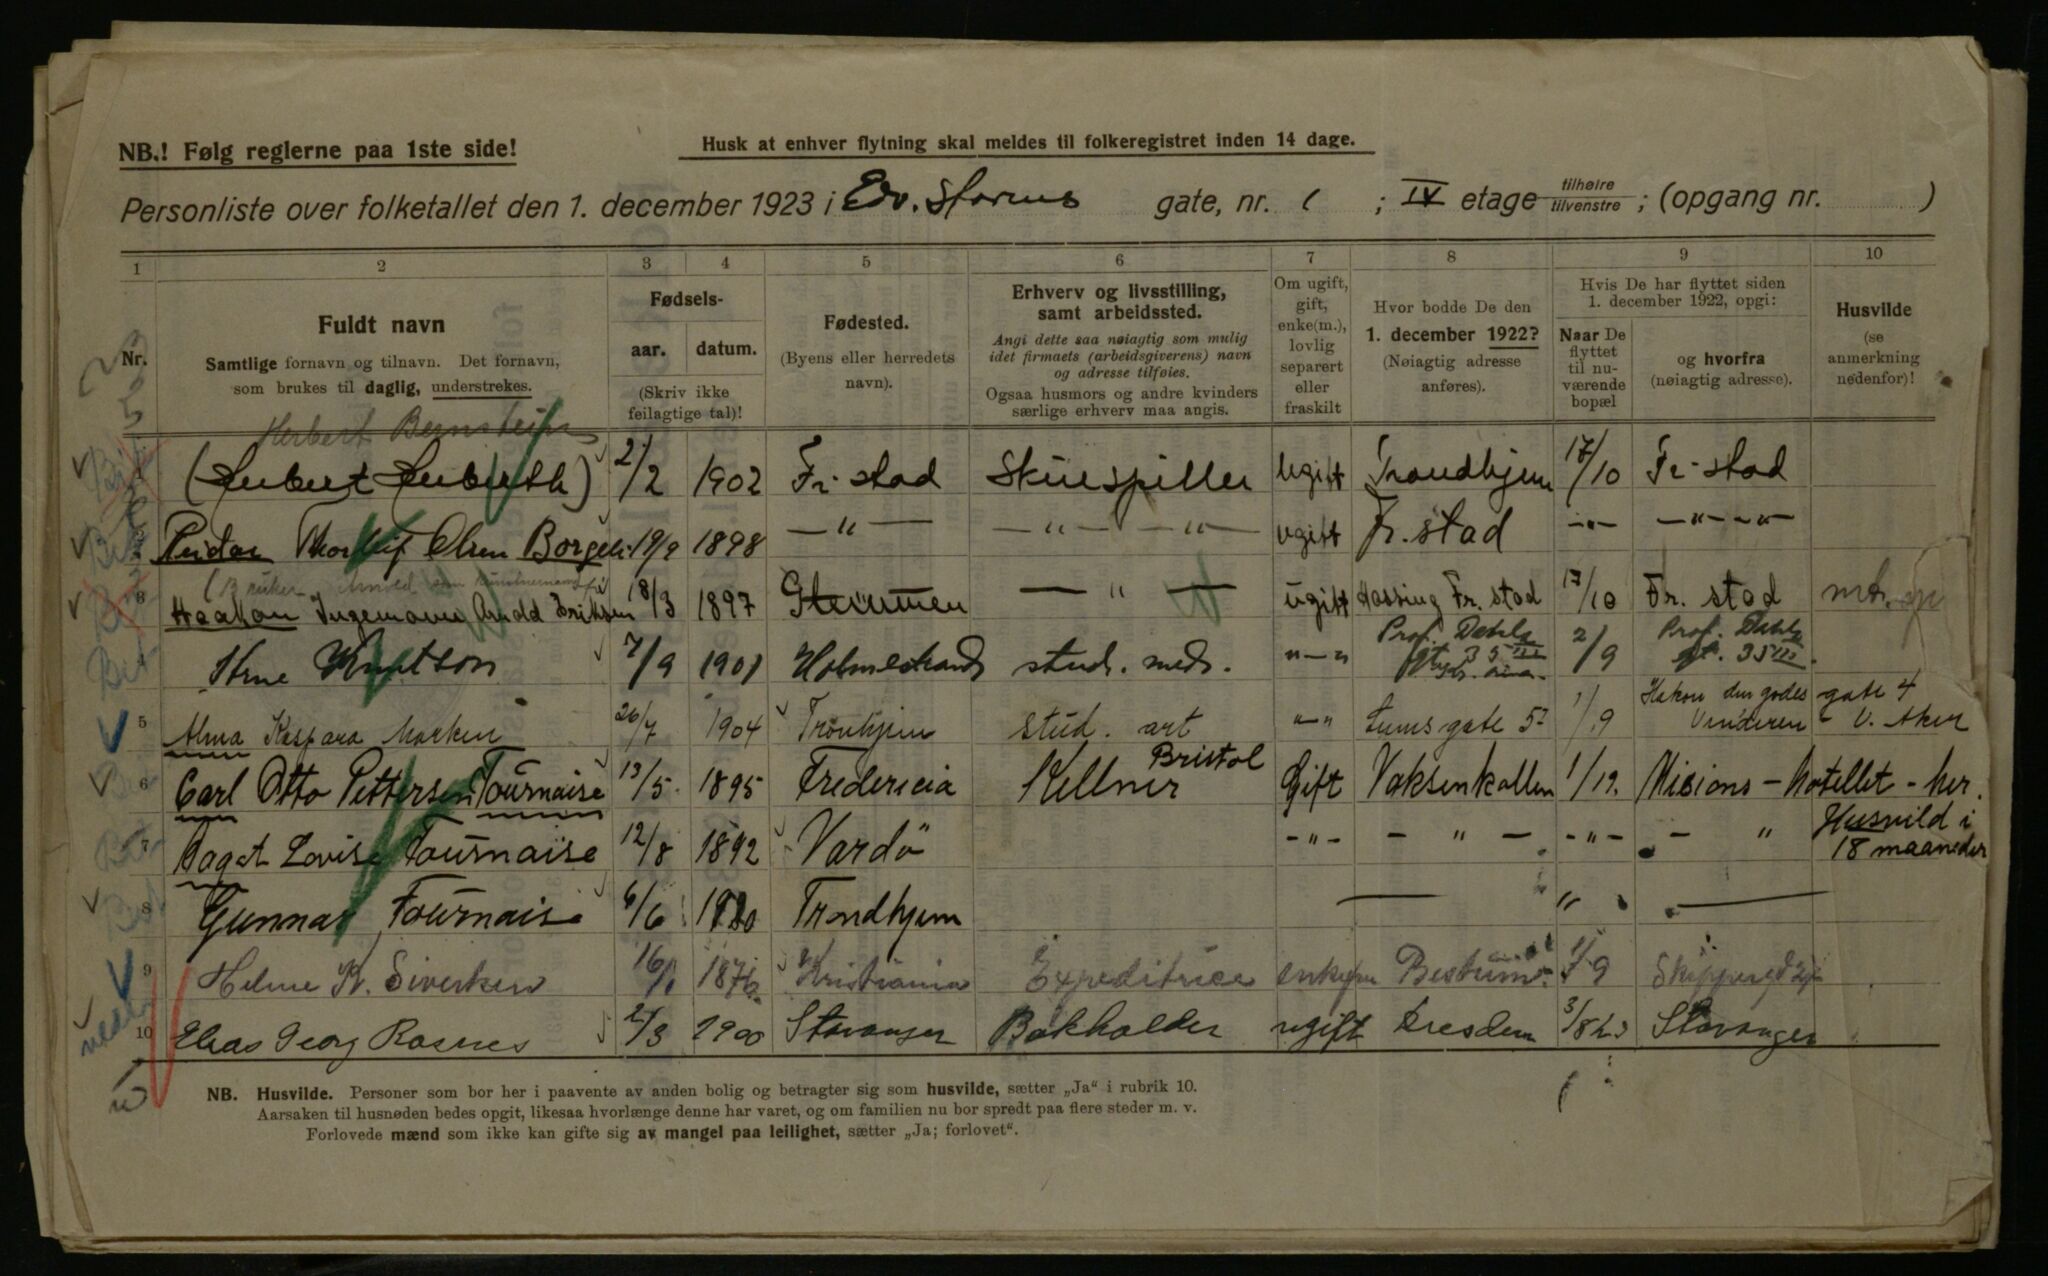 NB.! Følg reglerne paa 1ste side!
Husk at enhver flytning skal meldes til folkeregistret inden 14 dage.
Personliste over folketallet den 1. december 1923 i Edv. Storms gate, nr. 1 ; IV etage tilhøire tilvenstre ; (opgang nr. )
1 2 3 4 5 6 7 8 9 10
Nr.
Fuldt navn
Samtlige fornavn og tilnavn. Det fornavn,
som brukes til daglig, understrekes.
Fødsels-
aar. datum.
(Skriv ikke
feilagtige tal)!
Fødested.
(Byens eller herredets
navn).
Erhverv og livsstilling,
samt arbeidssted.
Angi dette saa nøiagtig som mulig
idet firmaets (arbeidsgiverens) navn
og adresse tilføies.
Ogsaa husmors og andre kvinders
særlige erhverv maa angis.
Om ugift,
gift,
enke(m.),
lovlig
separert
eller
fraskilt
Hvor bodde De den
1. december 1922?
(Nøiagtig adresse
anføres).
Hvis De har flyttet siden
1. december 1922, opgi:
Naar De
flyttet
til nu-
værende
bopæl
og hvorfra
(nøiagtig adresse).
Husvilde
(se
anmerkning
nedenfor)!
Herbert Bernstein
2/2 1902 Fr.stad Skuespiller Ugift Trondhjem 17/10 Fr.stad
2 Reidar Thorleif Olsen Borge 19/9 1898 —"— —"— —"— ugift Fr.stad —"— —"—"—
(Bruker Arnold som kunstnernavn)
3 Haakon Ingemann Arnold Eriksen 18/3 1897 —"— ugift Fr. stad 17/10 Fr. stad
4 Arne Knutson 7/9 1901 Holmestrand stud. med. "—" Prof. Dahls gt. 35 III 2/9 Prof. Dahls gt. 35 III
5 Alma Kaspara 26/7 1904 Tronhjem stud. art "—" gate 5 1/9 Hakon den godes gate 4
Vinderen V. Aker
6 Carl Otto Pettersen Tournaise 13/5 1895 Fredericia Kellner Bristol Gift Voksenkollen 1/12. Misions-hotellet - her.
7 Dagot Lovise Tournaise 12/8 1892 Vardø -"- - " - -"- - " Husvild i
18 maaneder
8 Gunnar Tournaise 6/6 1920 Trondhjem — " —
9 Helene K. Siversen 16/1 1876 Kristiania Expeditrice Bestum 1/9
10 Elias Georg Rosnes 2/3 1900 Stavanger Bokholder ugift Dresden 3/8 23 Stavanger
NB. Husvilde. Personer som bor her i paavente av anden bolig og betragter sig som husvilde, sætter „Ja" i rubrik 10.
Aarsaken til husnøden bedes opgit, likesaa hvorlænge denne har varet, og om familien nu bor spredt paa flere steder m. v.
Forlovede mænd som ikke kan gifte sig av mangel paa leilighet, sætter „Ja; forlovet".